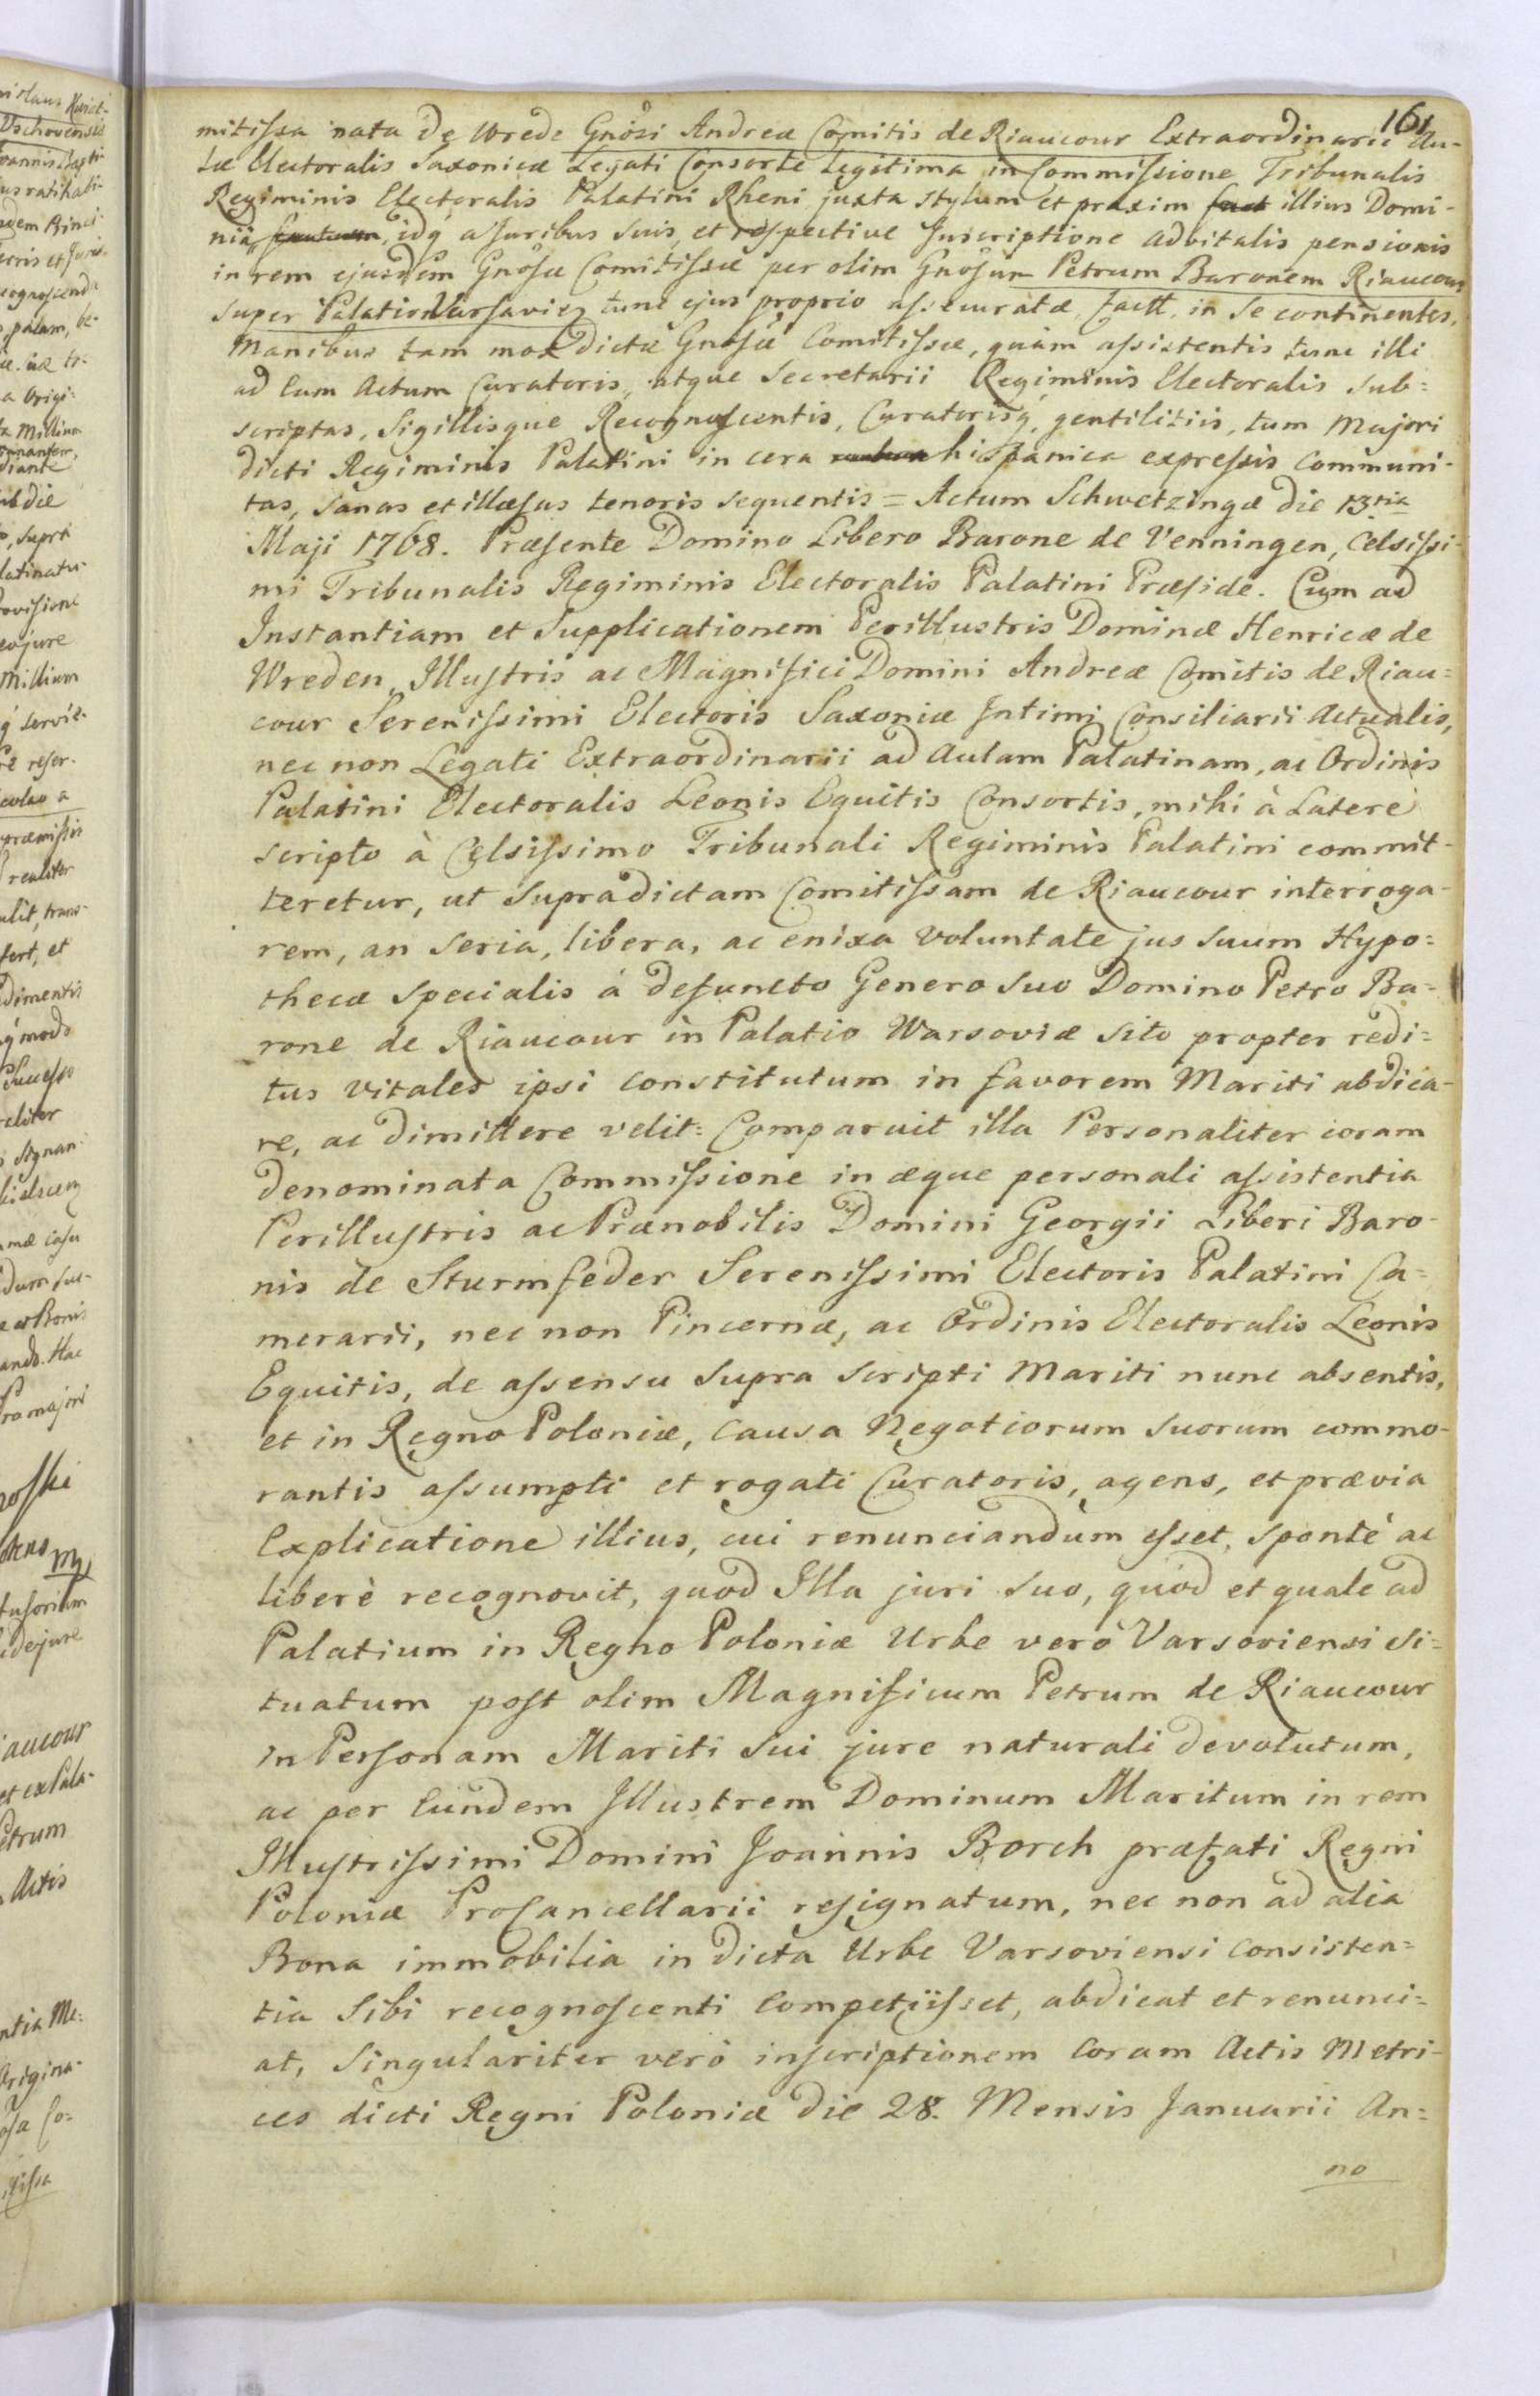 161
mitissa nata de Wrede Gnősi Andreæ Comitis de Riaucour Extraordinarii Au-
læ Electoralis Saxonicæ Legati Consorte Legitima in Commissione Tribunalis
Regiminis Electoralis Palatini Rheni juxta stylum et praxim illius Domi-
nii, idq̃ a juribus suis, et respective Inscriptione advitalis pensionis
in rem ejusdem Gnősæ Comitissæ per olim Gnősum Petrum Baronem Riaucour
super Palatio Varsaviæ tunc ejus proprio assecuratæ fact. in se continentes,
Manibus tam mox dictæ Gnősæ Comitissæ, quàm assistentis tunc illi
ad Eum Actum Curatoris, atque Secretarii Regiminis Electoralis sub=
scriptas, Sigillisque Recognoscentis, Curatorisq̃ gentilitiis, tum Majori
dicti Regiminis Palatini in cera hispanica expressis communi-
tas, sanas et illæsas tenoris sequentis = Actum Schwetzingæ die 13tia
Maji 1768. Præsente Domino Libero Barone de Venningen, Celsissi-
mi Tribunalis Regiminis Electoralis Palatini Præside. Cum ad
Instantiam et Supplicationem Perillustris Dominæ Henricæ de
Wreden, Illustris ac Magnifici Domini Andreæ Comitis de Riau=
cour Serenissimi Electoris Saxoniæ Intimi Consiliarii Actualis,
nec non Legati Extraordinarii ad Aulam Palatinam, ac Ordinis
Palatini Electoralis Leonis Equitis Consortis, mihi à Latere
scripto à Celsissimo Tribunali Regiminis Palatini commit-
teretur, ut supradictam Comitissam de Riaucour interroga-
rem, an seria, libera, ac enixa voluntate jus suum Hypo=
thecæ specialis à defuncto Genero suo Domino Petro Ba-
rone de Riaucour in Palatio Warsoviæ sito propter redi=
tus vitales ipsi constitutum in favorem Mariti abdica-
re, ac dimittere velit: Comparuit illa Personaliter coram
denominata Commissione in æque personali assistentia
Perillustris ac Prænobilis Domini Georgii Liberi Baro-
nis de Sturmfeder Serenissimi Electoris Palatini Ca=
merarii, nec non Pincernæ, ac Ordinis Electoralis Leonis
Equitis, de assensu supra scripti Mariti nunc absentis,
et in Regno Poloniæ, causa Negotiorum suorum commo-
rantis assumpti et rogati Curatoris, agens, et prævia
Explicatione illius, cui renunciandum esset, sponté ac
liberè recognovit, quod Illa juri suo, quòd et quale ad
Palatium in Regno Poloniæ Urbe verò Varsoviensi si=
tuatum post olim Magnificum Petrum de Riaucour
in Personam Mariti sui jure naturali devolutum,
ac per Eundem Illustrem Dominum Maritum in rem
Illustrissimi Domini Joannis Borch præfati Regni
Poloniæ ProCancellarii resignatum, nec non ad alia
Bona immobilia in dicta Urbe Varsoviensi consisten=
tia Sibi recognoscenti competiisset, abdicat et renunci=
at, Singulariter verò inscriptionem coram Actis Metri-
ces dicti Regni Poloniæ die 28. Mensis Januarii An=
no